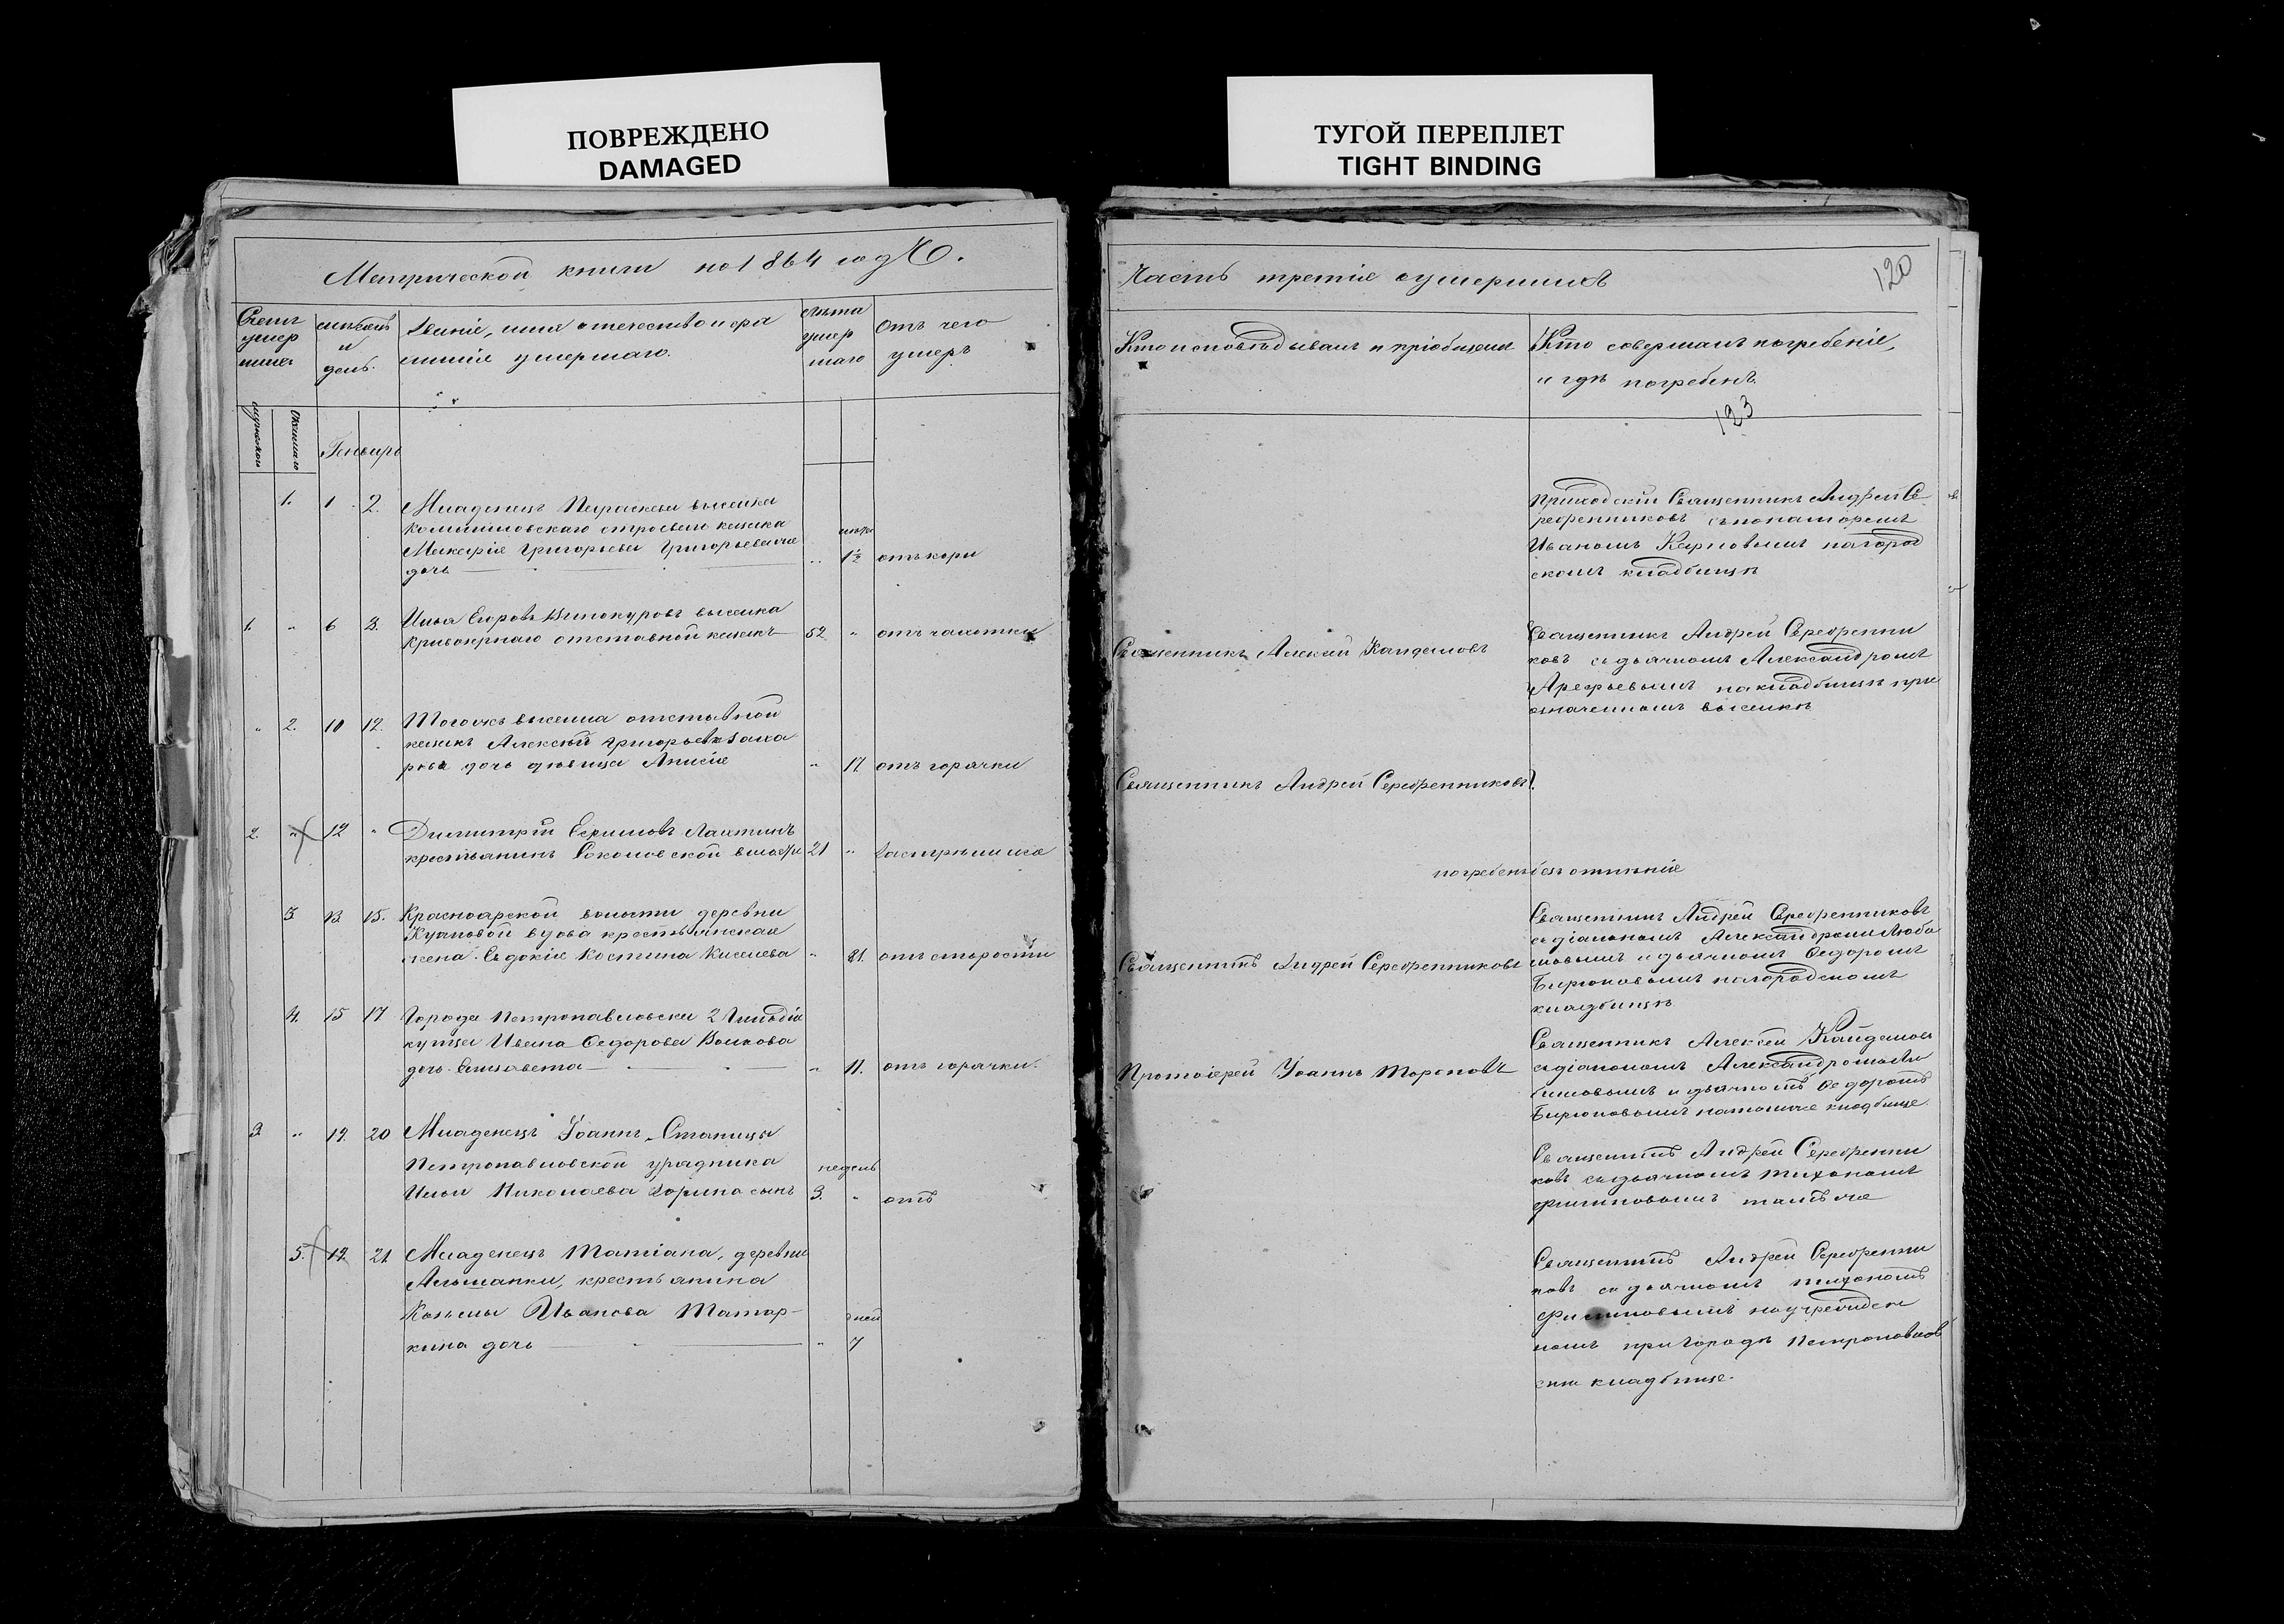 ПОВРЕЖДЕНО
DAMAGED
ТУГОЙ ПЕРЕПЛЕТ
TIGHT BINDING
Метрической книги на 1864 годъ.
Счетъ умер шихъ
мѣсяцъ и день.
Званіе, имя отечество и фа
милія умершаго.
Лѣта умер шаго
Отъ чего умеръ
мужеска
женскаго
Генварь
1. 1 2. Младенецъ Параскева выселка
казака
Макарія Григорьева
дочь 1½ отъ кори
1. " 6 8. Илья Егоровъ Винокуровъ выселка
Кривоозрнаго отставной казакъ 52 " отъ чахотки
" 2. 10 12. Тогожъ выселка отставной
казакъ Алексѣй Григорьевъ Заха
рова дочь дѣвица Анисія " 17. отъ горячки
2. " 12 " Димитрій Ефимовъ Лахтинъ
крестьянинъ Соколовской волости 21 " застрѣлился
3 13 15. Красноарской волости деревни
вдова крестьянская
жена Евдокія Костина Киселева " 81. отъ старости
4. 15 17 Города Петропавловска 2 Гильдіи
купца Ивана Федорова Волкова
дочь Елисавета " 11. отъ горячки.
3. " 19. 20 Младенецъ Іоаннъ, Станицы
Петропавловской урядника недель
Ильи Николаева Зорина сынъ 3. " отъ
5. 19. 21. Младенецъ Татіана, деревни
крестьянина
Козьмы Иванова Татар- дней
кина дочь " 7
Часть третія о умершихъ
120
Кто исповѣдывалъ и пріобщалъ
Кто совершалъ погребеніе,
и гдѣ погребенъ.
123
Приходскій Священникъ Андрей Се
ребренниковъ съ пономаремъ
Иваномъ Карповымъ на город
скомъ кладбищѣ
Священникъ Алексѣй Кайдаловъ
Священникъ Андрей Серебренни
ковъ съ дьячкомъ Александромъ
Арефьевымъ на кладбищѣ при
означенномъ выселкѣ
Священникъ Андрей Серебренниковъ.
погребенъ безъ отпѣнія
Священникъ Андрей Серебренниковъ
Священникъ Андрей Серебренниковъ
съ діакономъ Александромъ Любо
мовымъ и дьячкомъ Федоромъ
Бирюковымъ на городскомъ
кладбищѣ
Протоіерей Іоаннъ Тороповъ
Священникъ Алексѣй Кайдаловъ
съ діакономъ Александромъ
и дьячкомъ Федоромъ
Бирюковымъ на томже кладбище
Священникъ Андрей Серебренни
ковъ съ дьячкомъ Тихономъ
Филиповымъ тамъ же
Священникъ Андрей Серебренни
ковъ съ дьячкомъ Тихономъ
Филиповымъ на учрежден
номъ при городѣ Петропавлов
скѣ кладбище.